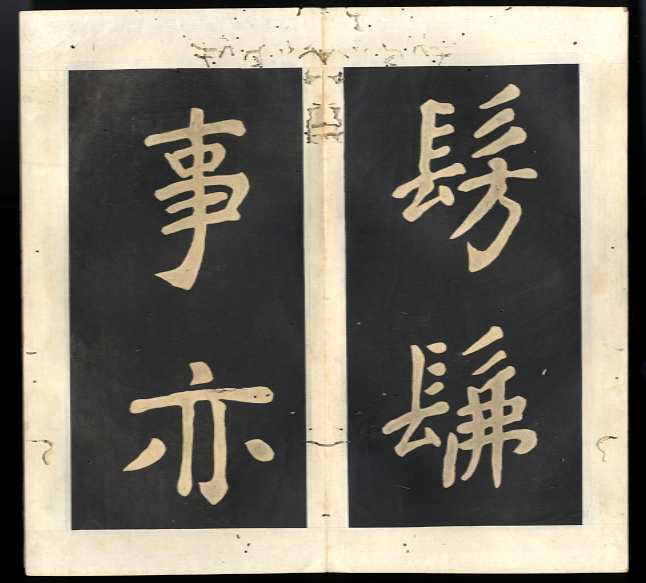 髣髴
事亦